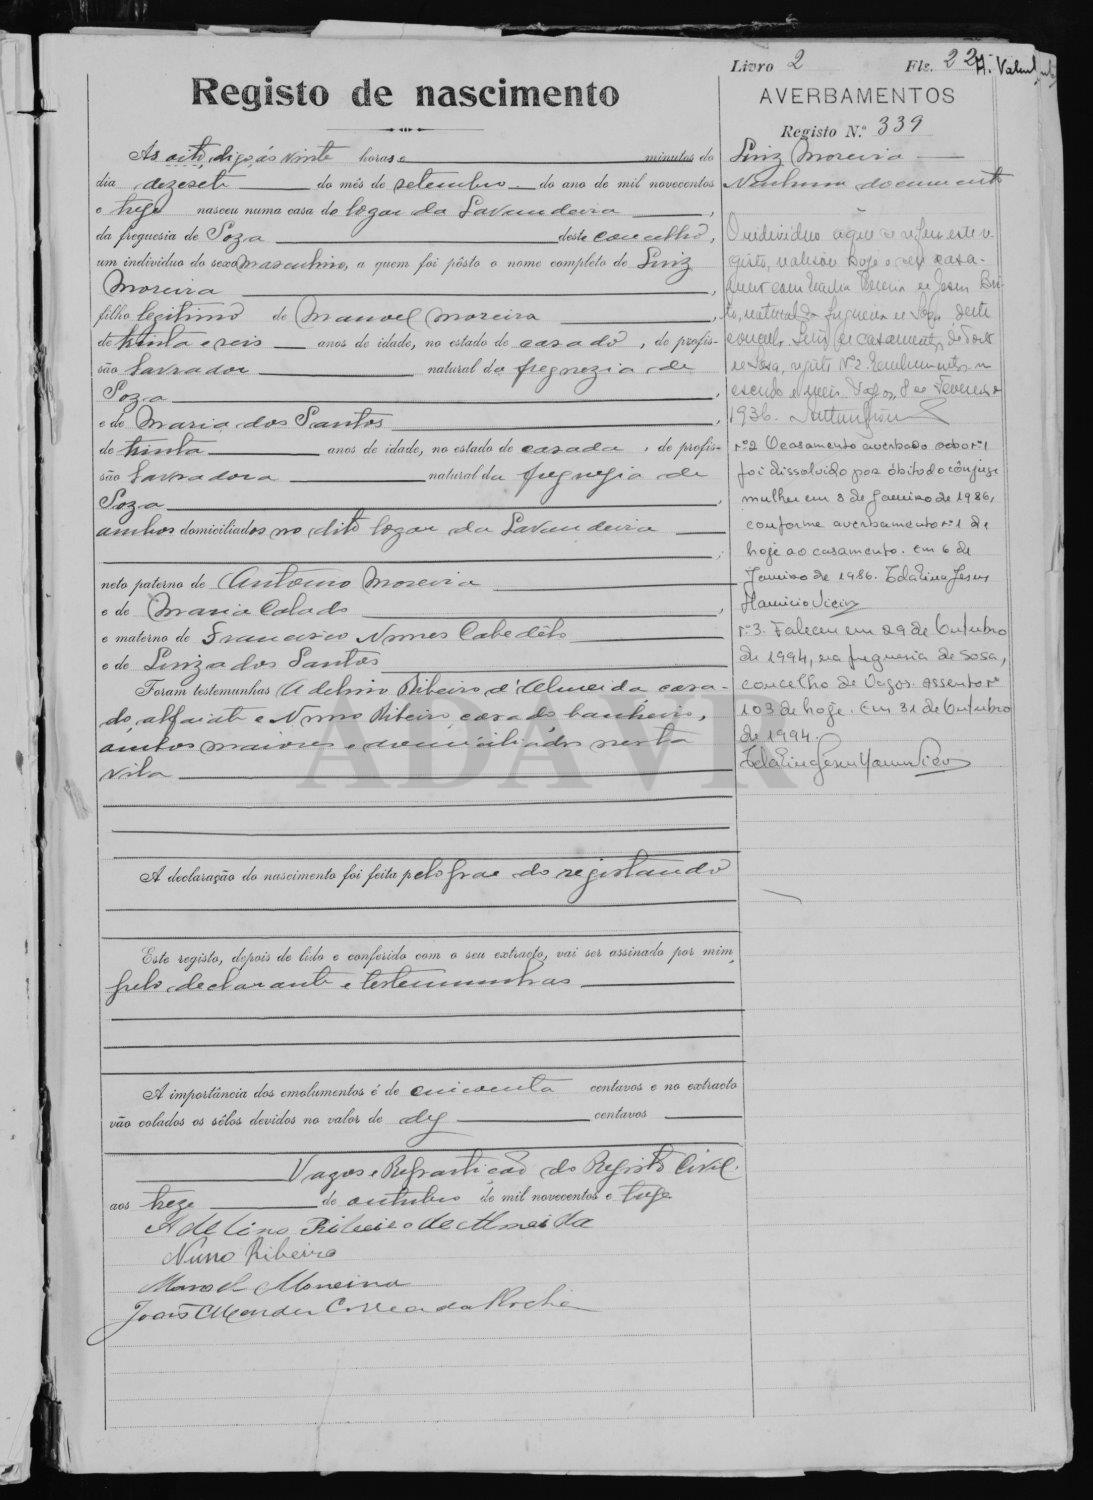 Livro 2 Fls. 22
Registo de nascimento
AVERBAMENTOS
Registo N.º 339
Luiz Moreira
Nenhum documento
Ás oito, digo, ás vinte horas e minutos do
dia dezesete do mês de setembro do ano de mil novecentos
e treze nasceu numa casa do logar da Lavandeira,
da freguesia de Soza deste concelho,
um individuo do sexo masculino, a quem foi pôsto o nome completo de Luiz
Moreira,
filho legitimo de Manoel Moreira,
de trinta e seis anos de idade, no estado de casado, de profis-
são lavrador natural da freguezia de
Soza,
e de Maria dos Santos,
de trinta anos de idade, no estado de casada, de profis-
são lavradora natural da freguezia de
Soza,
ambos domiciliados no dito logar da Lavandeira
;
neto paterno de Antonio Moreira
e de Maria Calado,
e materno de Francisco Nunes Cabedêlo
e de Luiza dos Santos
Foram testemunhas Adelino Ribeiro d'Almeida, casa-
do, alfaiate e Nuno Ribeiro, casado, banheiro,
ambos maiores e domiciliados nesta
vila
A declaração do nascimento foi feita pelo pae do registando
Este registo, depois de lido e conferido com o seu extracto, vai ser assinado por mim,
pelo declarante e testemunhas
A importância dos emolumentos é de cincoenta centavos e no extracto
vão colados os sêlos devidos no valor de dez centavos
Vagos e Repartição do Registo Civil.
aos treze de outubro de mil novecentos e treze
Adelino Ribeiro de Almeida
Nuno Ribeiro
Manoel Moreira
João Mendes Correia da Rocha
O individuo a que se refere este re-
gisto, realisou hoje o seu casa-
mento com Maria de Jesus Bri-
to, natural da freguesia de Soza, deste
concelho. de casamentos do Posto
de Sosa, registo Nº 2.
Vagos, 8 de Fevereiro
1936.
nº 2 O casamento averbado sob o nº 1
foi dissolvido por óbito do cônjuge
mulher em 3 de Janeiro de 1986,
conforme averbamento nº 1 de
hoje ao casamento. Em 6 de
Janeiro de 1986.
nº 3. Faleceu em 29 de Outubro
de 1994, na freguesia de Sosa,
concelho de Vagos. Assento nº
103 de hoje. Em 31 de Outubro
de 1994.
ADAVR